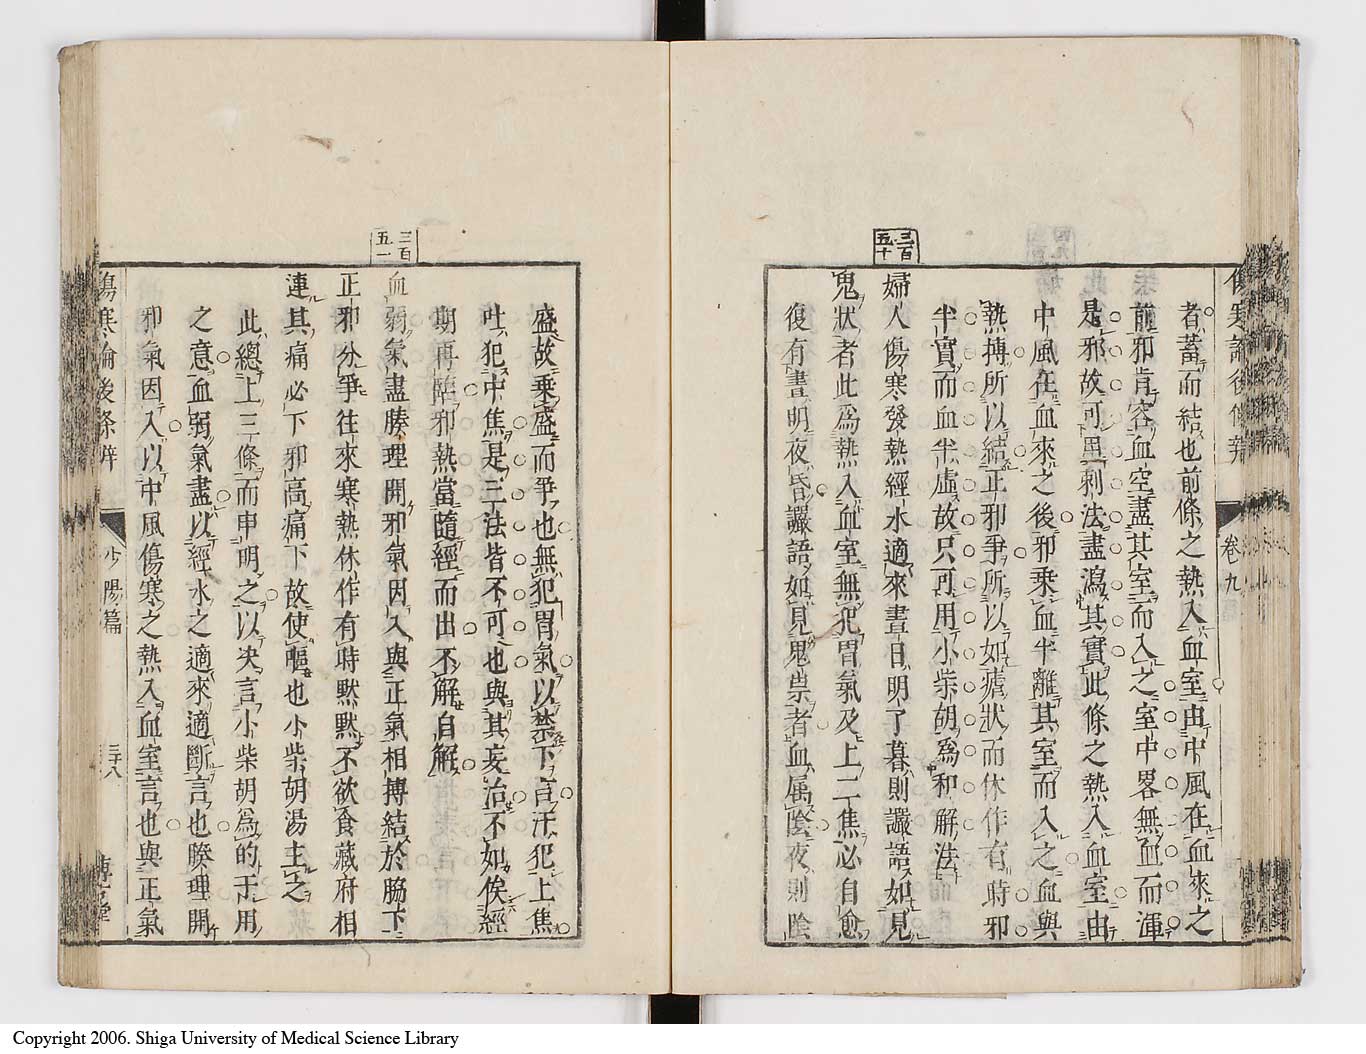 傷寒論後條辨
卷九
者蓄而結也前條之熱入血室由中風在血來之
前邪肯容血空盡其室而入之室中畧無血而渾
是邪故可用刺法盡瀉其實此條之熱入血室由
中風在血來之後邪乘血半離其室而入之血與
熱摶所以結正邪爭所以如瘧狀而休作有時邪
半實而血半虛故只可用小柴胡為和解法
三百五十
婦人傷寒發熱經水適來晝日明了暮則讝語如見
鬼狀者此為熱入血室無犯胃氣及上二焦必自愈
復有晝明夜昏讝語如見鬼祟者血属陰夜則陰
盛故乘盛而爭也無犯胃氣以禁下言汗犯上焦
吐犯中焦是三法皆不可也與其妄治不如俟經
期再臨邪熱當隨經而出不解自解
三百五一
血弱氣盡腠理開邪氣因入與正氣相搏結於脇下
正邪分爭往來寒熱休作有時默默不欲食藏府相
連其痛必下邪高痛下故使嘔也小柴胡湯主之
此總上三條而申明之以决言小柴胡為的于用
之意血弱氣盡以經水之適來適斷言也腠理開
邪氣因入以中風傷寒之熱入血室言也與正氣
傷寒論後條辨
少陽篇
三十八
Copyright 2006. Shiga University of Medical Science Library